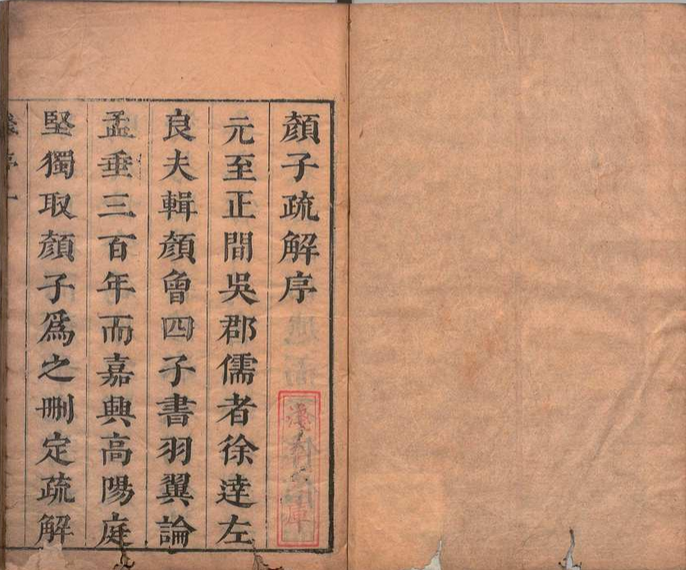 顏子疏解序
元至正間吳郡儒者徐達左
良夫輯顏曾四子書羽翼論
孟垂三百年而嘉興高陽庭
堅獨取顏子爲之刪定疏解